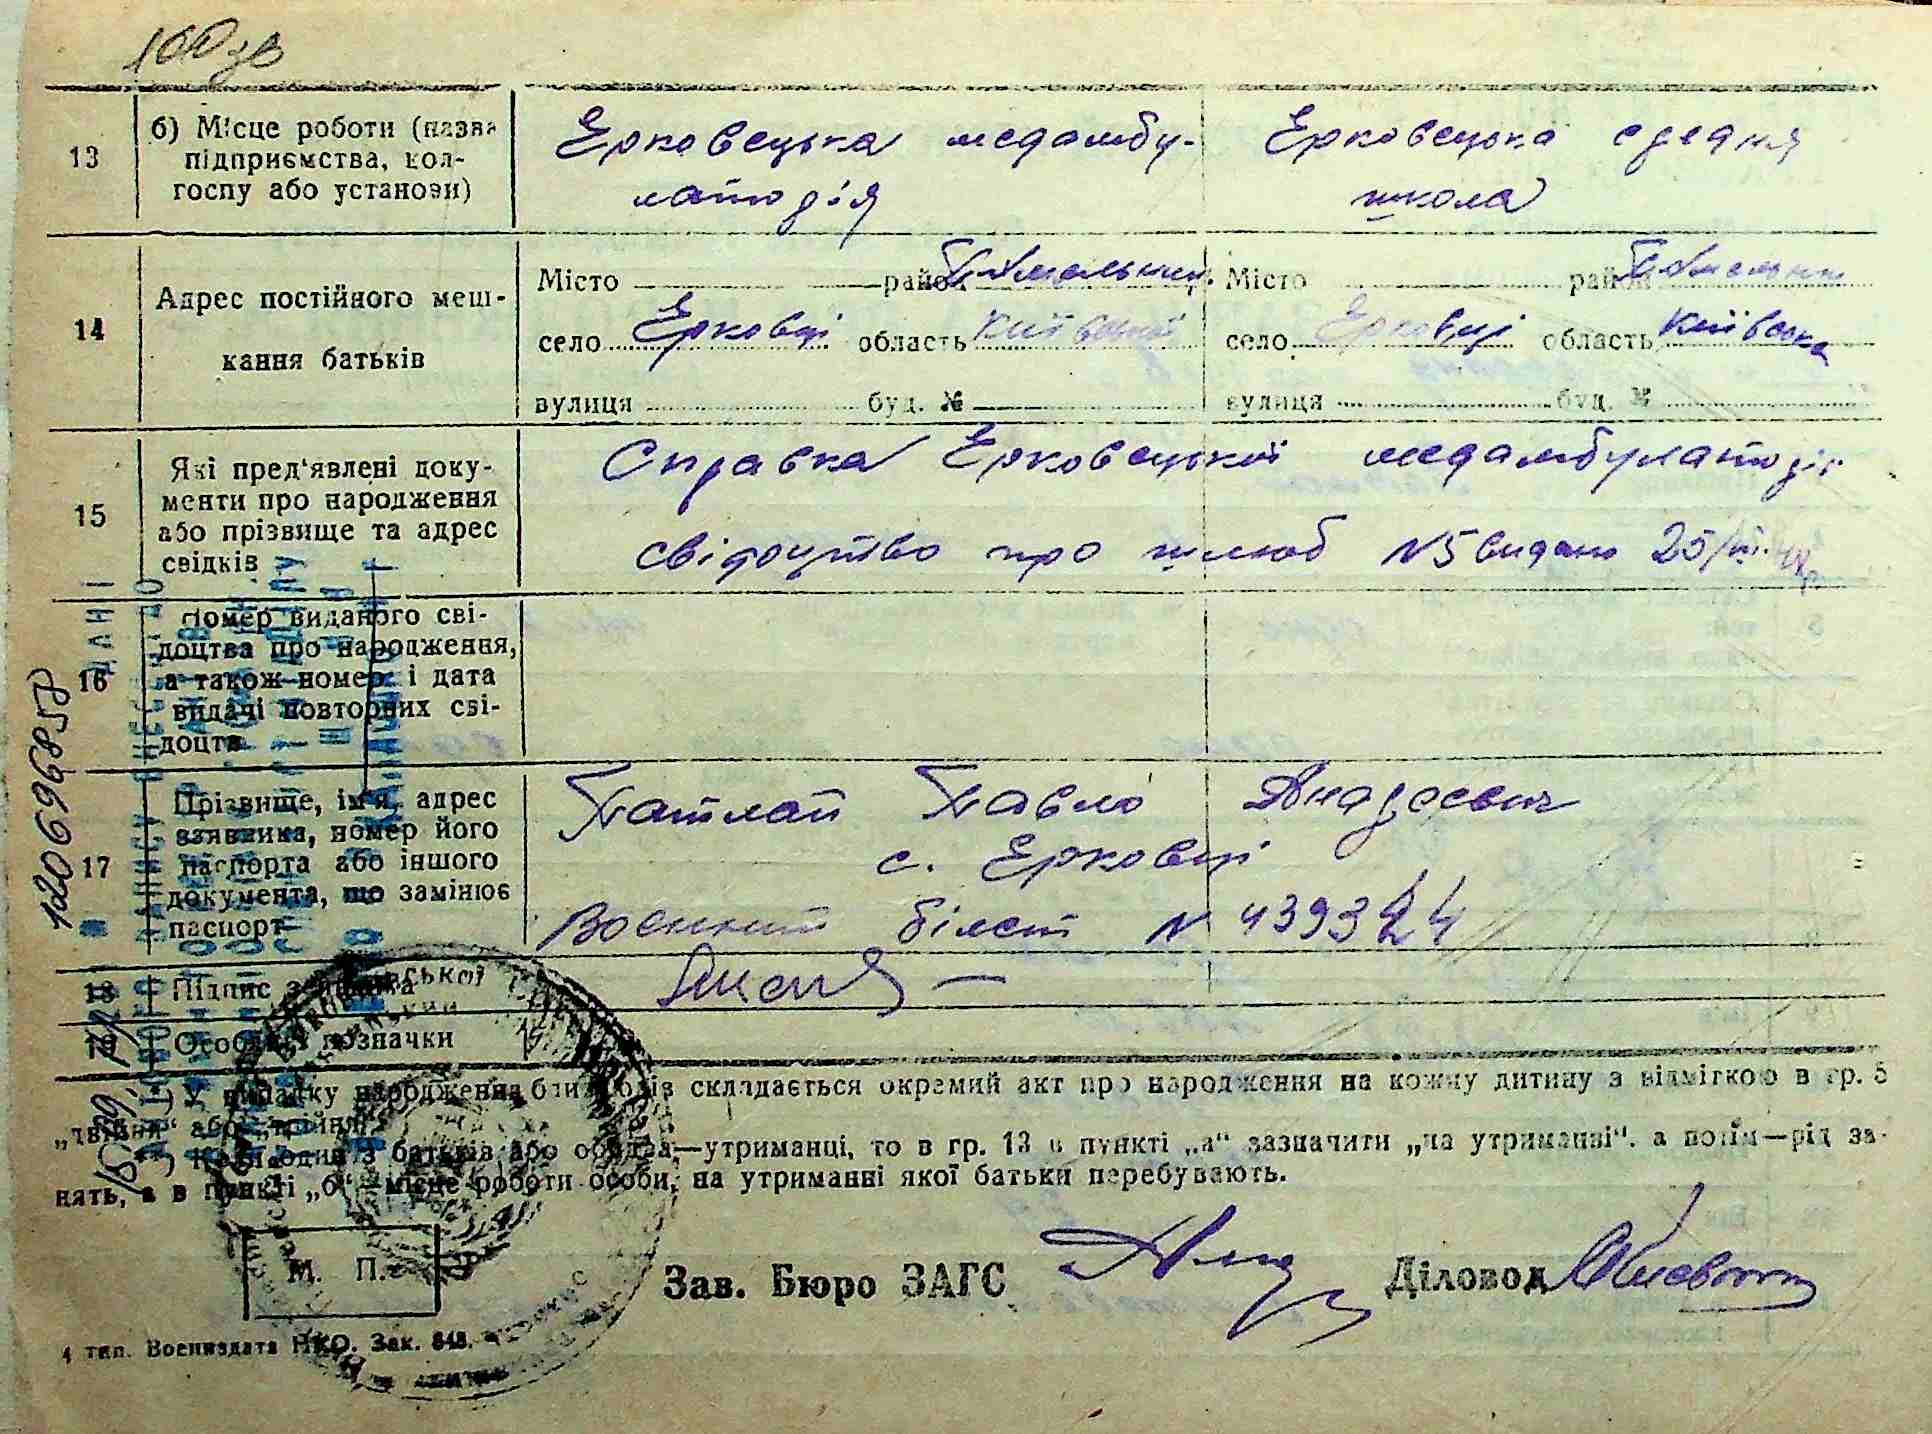 100 зв
13
б) Місце роботи (назва
підприємства, кол-
госпу або установи)
Єрковецька медамбу-
латорія
Єрковецька средня
школа
14
Адрес постійного меш-
кання батьків
Місто район
село Єрковці область Київської
вулиця буд. №
Місто район
село Єрковці область Київська
вулиця буд. №
15
Які пред'явлені доку-
менти про народження
або прізвище та адрес
свідків
Справка Єрковецької медамбулаторії
свідоцтво про шлюб N5 видано 25/III.
16
Номер виданого сві-
доцтва про народження,
а також номер і дата
видачі повторних сві-
доцтв
17
Прізвище, ім'я, адрес
заявника, номер його
паспорта або іншого
документа, що замінює
паспорт
Патлай Павло
с. Єрковці
Воєнний білет N 439324
18
Підпис заявника
19
Особливі позначки
*) У випадку народження близнюків складається окремий акт про народження на кожну дитину з відміткою в гр. 5
„двійня“ або „трійня“.
**) Коли один з батьків або обидва—утриманці, то в гр. 13 в пункті „а“ зазначити „на утриманні“, а потім—рід за-
нять, а в пункті „б“ місце роботи особи, на утриманні якої батьки перебувають.
М. П.
Зав. Бюро ЗАГС
Діловод
4 тип. Воениздата НКО. Зак. 648.
120696858